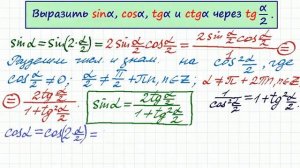 Выразить sinα, cosα, tgα и ctgα через tg α/2.
sinα = sin(2·α/2) = 2sin α/2 cos α/2 = (2sin α/2 cos α/2)/1 =
Разделим числ. и знам. на cos² α/2, где
cos α/2 ≠ 0; α/2 ≠ π/2 + πn, n∈Z; α ≠ π + 2πn, n∈Z
= (2tg α/2)/(1+tg² α/2) sinα = (2tg α/2)/(1+tg² α/2) 1/(cos² α/2) = 1+tg² α/2
cosα = cos(2·α/2) =